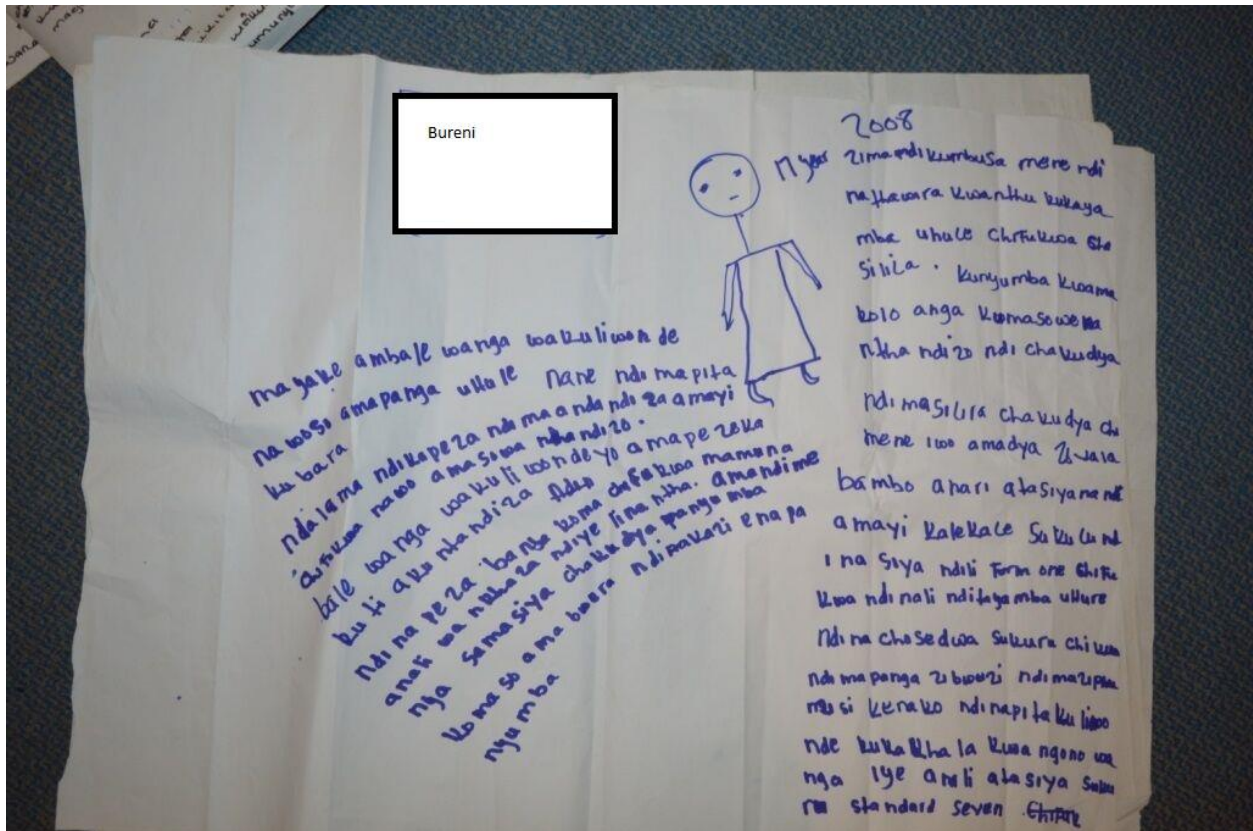 Bureni
2008
zimandikumbusa mene ndi
nathawara kwanthu kukaya
mba uhule chifukwa cha
Silila. kunyumba kwama
kolo anga kumasowema
ntha ndizo ndi chakudya
ndimasilira chakudya chi
mene iwo amadya zovala
bambo anari atasiyana ndi
amayi kalekale Sukulu nd
ina Siya ndili Form one chifu
kwa ndinali nditayamba uhure
ndina chosedwa sukura chi
ndimapanga zibwezi
kenako ndinapita ku liwo
nde kukakhala kwa ngono wa
nga iye anali atasiya Suku
ru standard seven
mayake ambale wanga wakuliwonde
nawoso amapanga uhule nane ndimapita
kubara
ndalama ndikapeza ndimaandandiza amayi
chifukwa nawo amasowa nthandizo.
bale wanga wakuliwondeyo amapezeka
kuti akuntandiza
ndina peza banja koma chifukwa mamuna
anali wankhaza ndiye linantha. amandime
nya samasiya chakudya panyumba
koma so ama bwera ndi makazi ena pa
nyumba